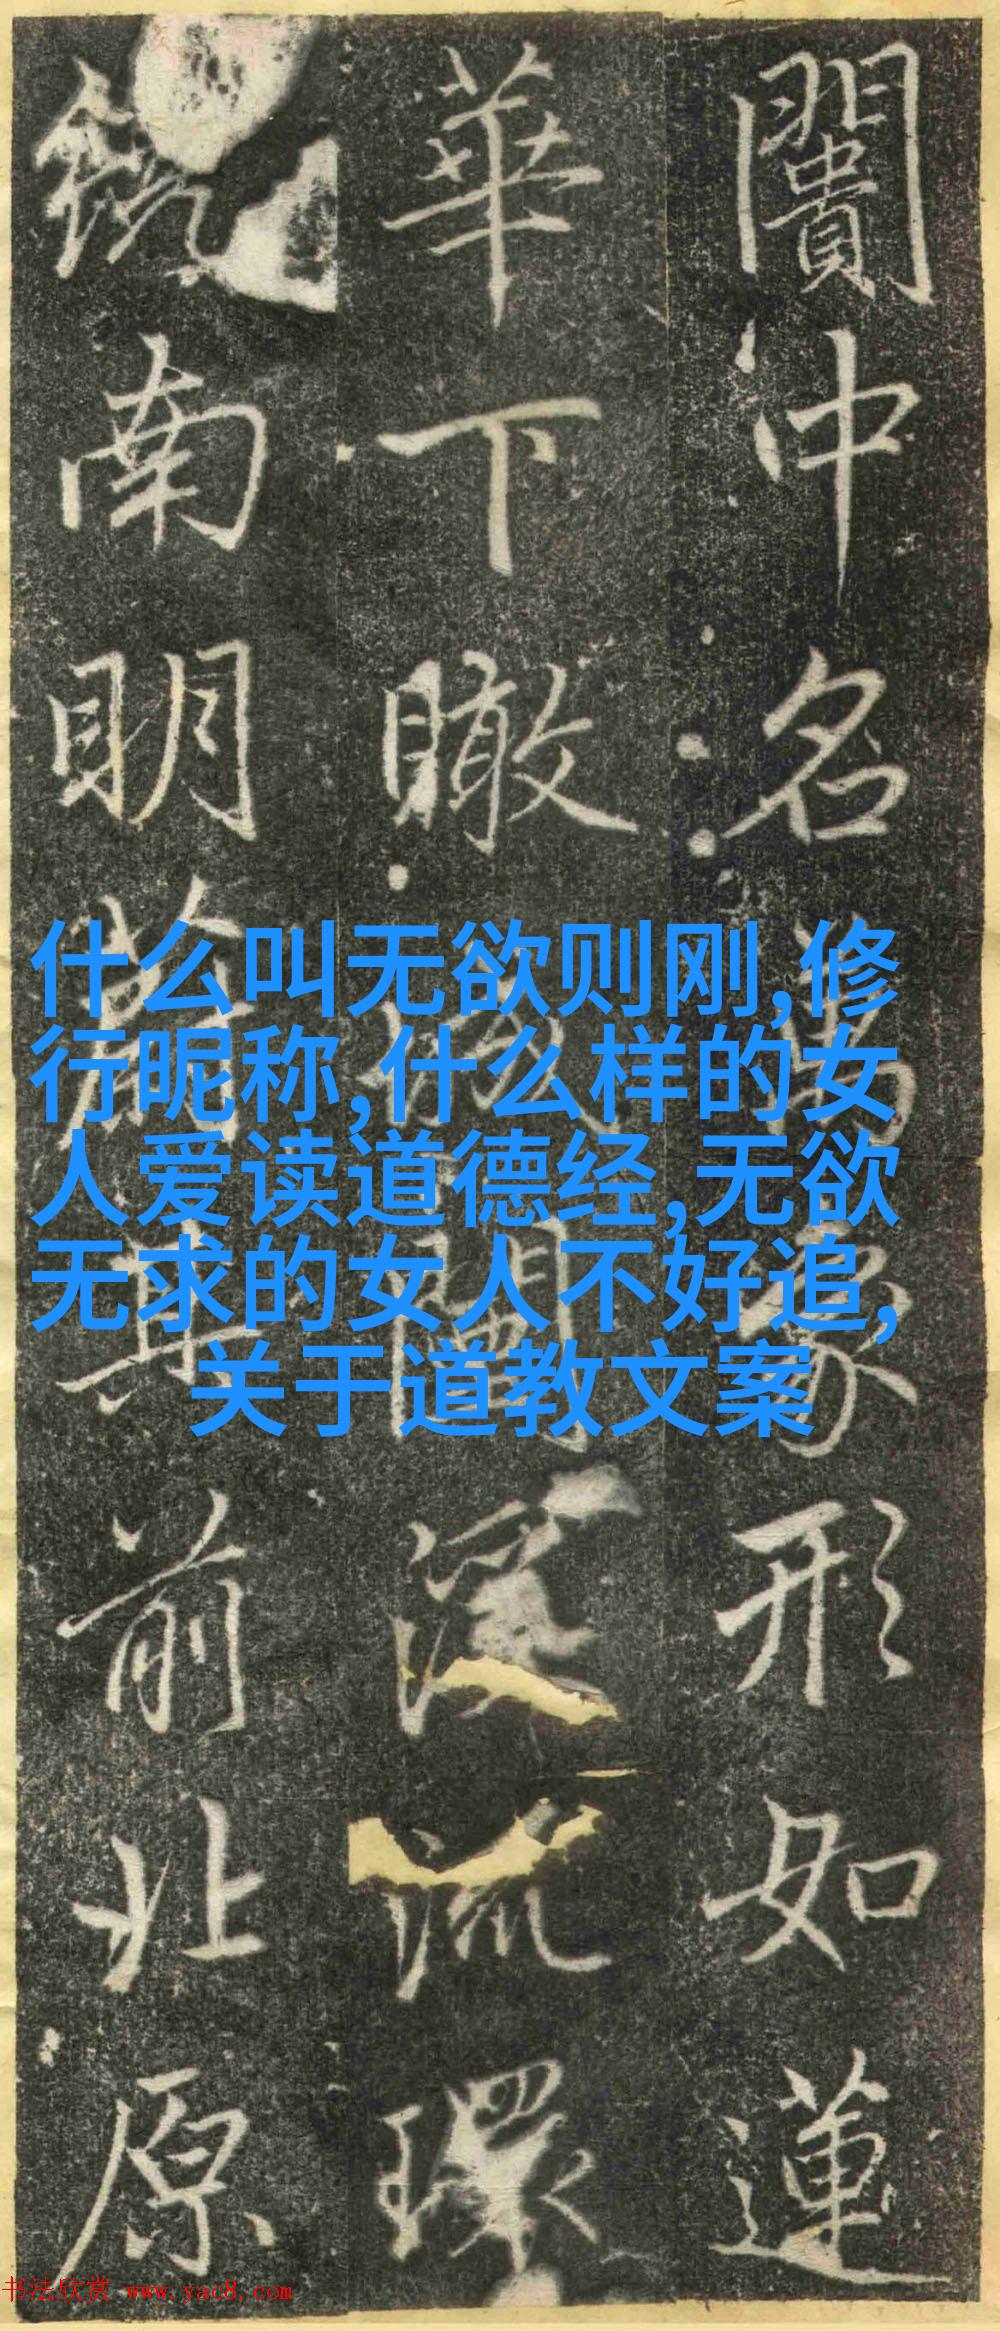 闠中名萬象形如蓮
華下瞰城深流環
南明前北原
什么叫无欲则刚,修
行昵称,什么样的女
人爱读道德经,无欲
无求的女人不好追,
关于道教文案
书法欣赏 www.yac8.com